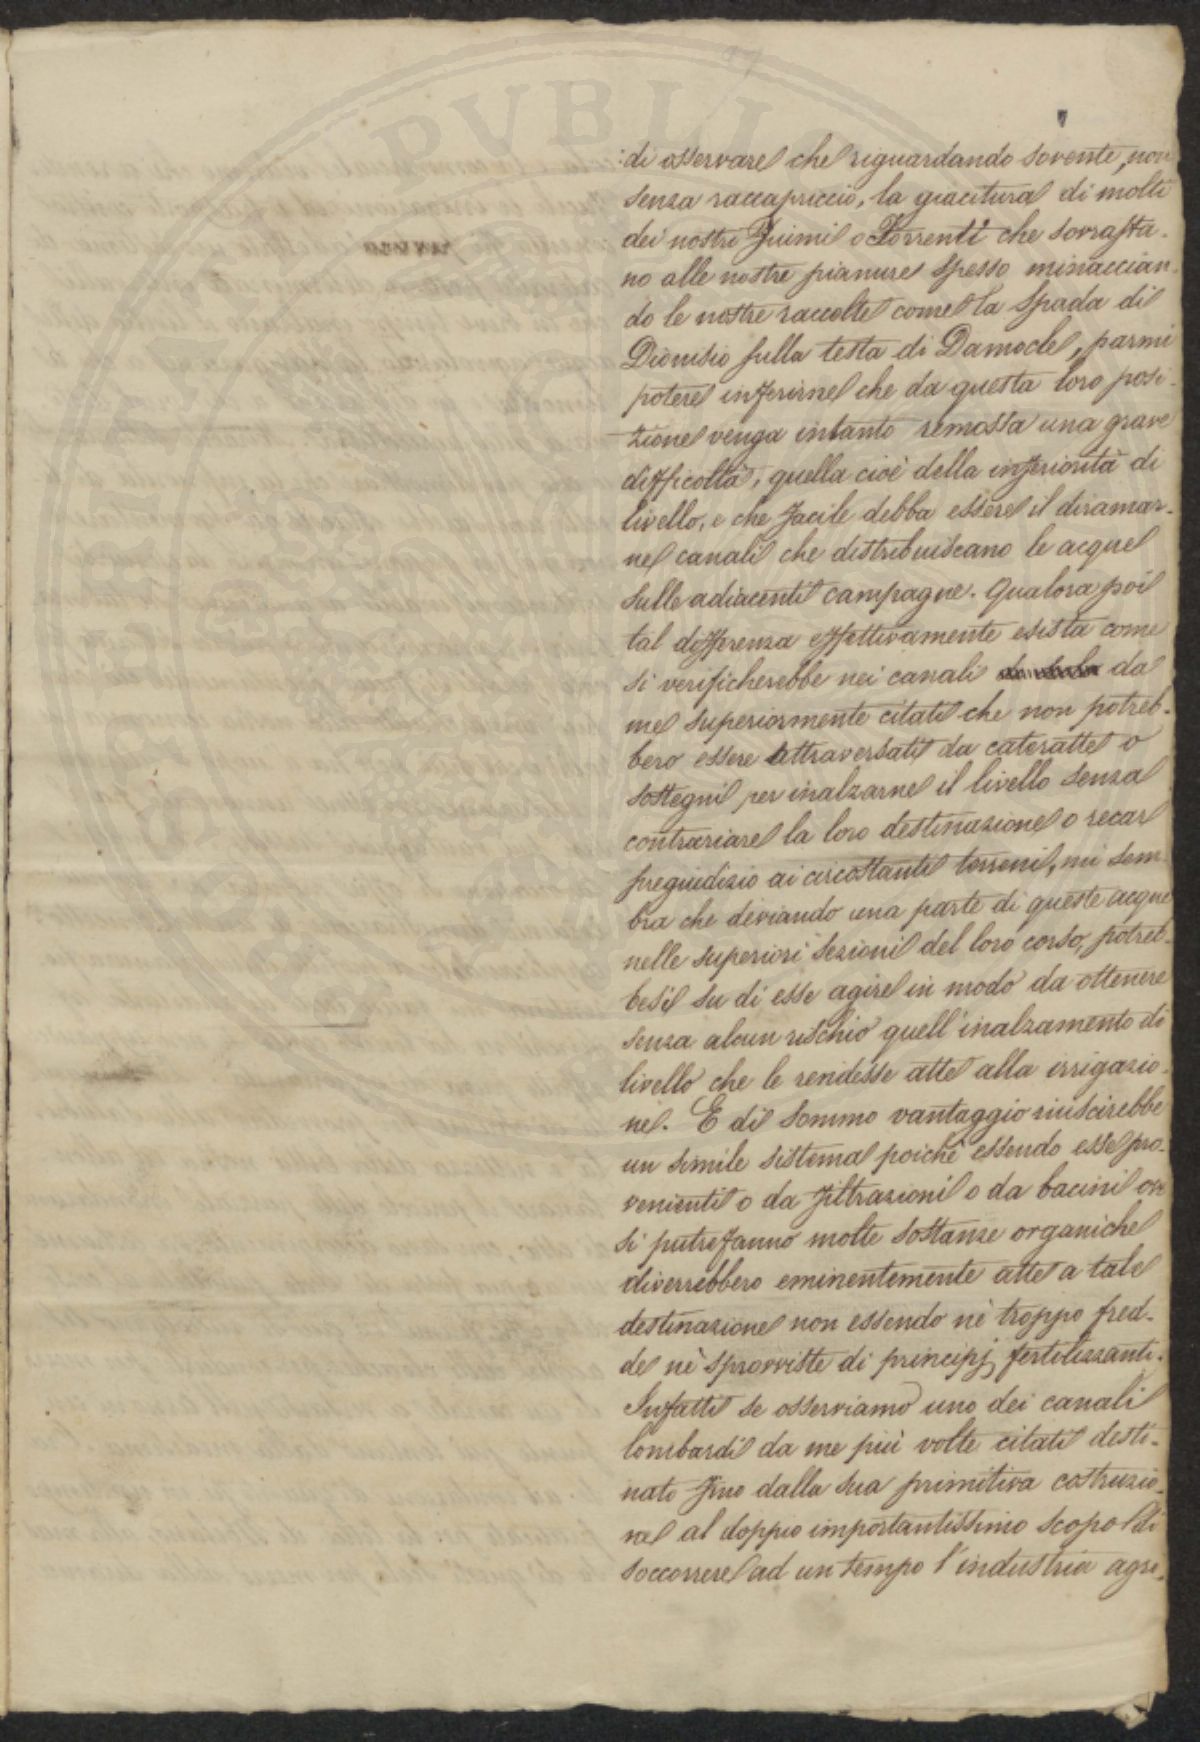 7
di osservare che riguardando sovente, non
senza raccapriccio, la giacitura di molti
dei nostri Fiumi o Torrenti che sovrasta-
no alle nostre pianure spesso minaccian-
do le nostre raccolte come la Spada di
Dionisio sulla testa di Damocle, parmi
potere inferirne che da questa loro posi-
zione venga intanto remossa una grave
difficoltà, quella cioè della inferiorità di
livello, e che facile debba essere il diramar-
ne canali che distribuiscano le acque
sulle adiacenti campagne. Qualora poi
tal differenza effettivamente esista come
si verificherebbe nei canali da
me superiormente citati che non potreb-
bero essere attraversati da cateratte o
sostegni per inalzarne il livello senza
contrariare la loro destinazione o recar
pregiudizio ai circostanti terreni, mi sem-
bra che deviando una parte di queste acque
nelle superiori sezioni del loro corso, potreb-
besi su di esse agire in modo da ottenere
senza alcun rischio quell'inalzamento di
livello che le rendesse atte alla irrigazio-
ne. E di sommo vantaggio riuscirebbe
un simile sistema poichè essendo esse pro-
venienti o da filtrazioni o da bacini ove
si putrefanno molte sostanze organiche
diverrebbero eminentemente atte a tale
destinazione non essendo nè troppo fred-
de nè sprovviste di principj fertilizzanti.
Infatti se osserviamo uno dei canali
lombardi da me più volte citati desti-
nato fino dalla sua primitiva costruzio-
ne al doppio importantissimo scopo di
soccorrere ad un tempo l'industria agri-
PVBLI